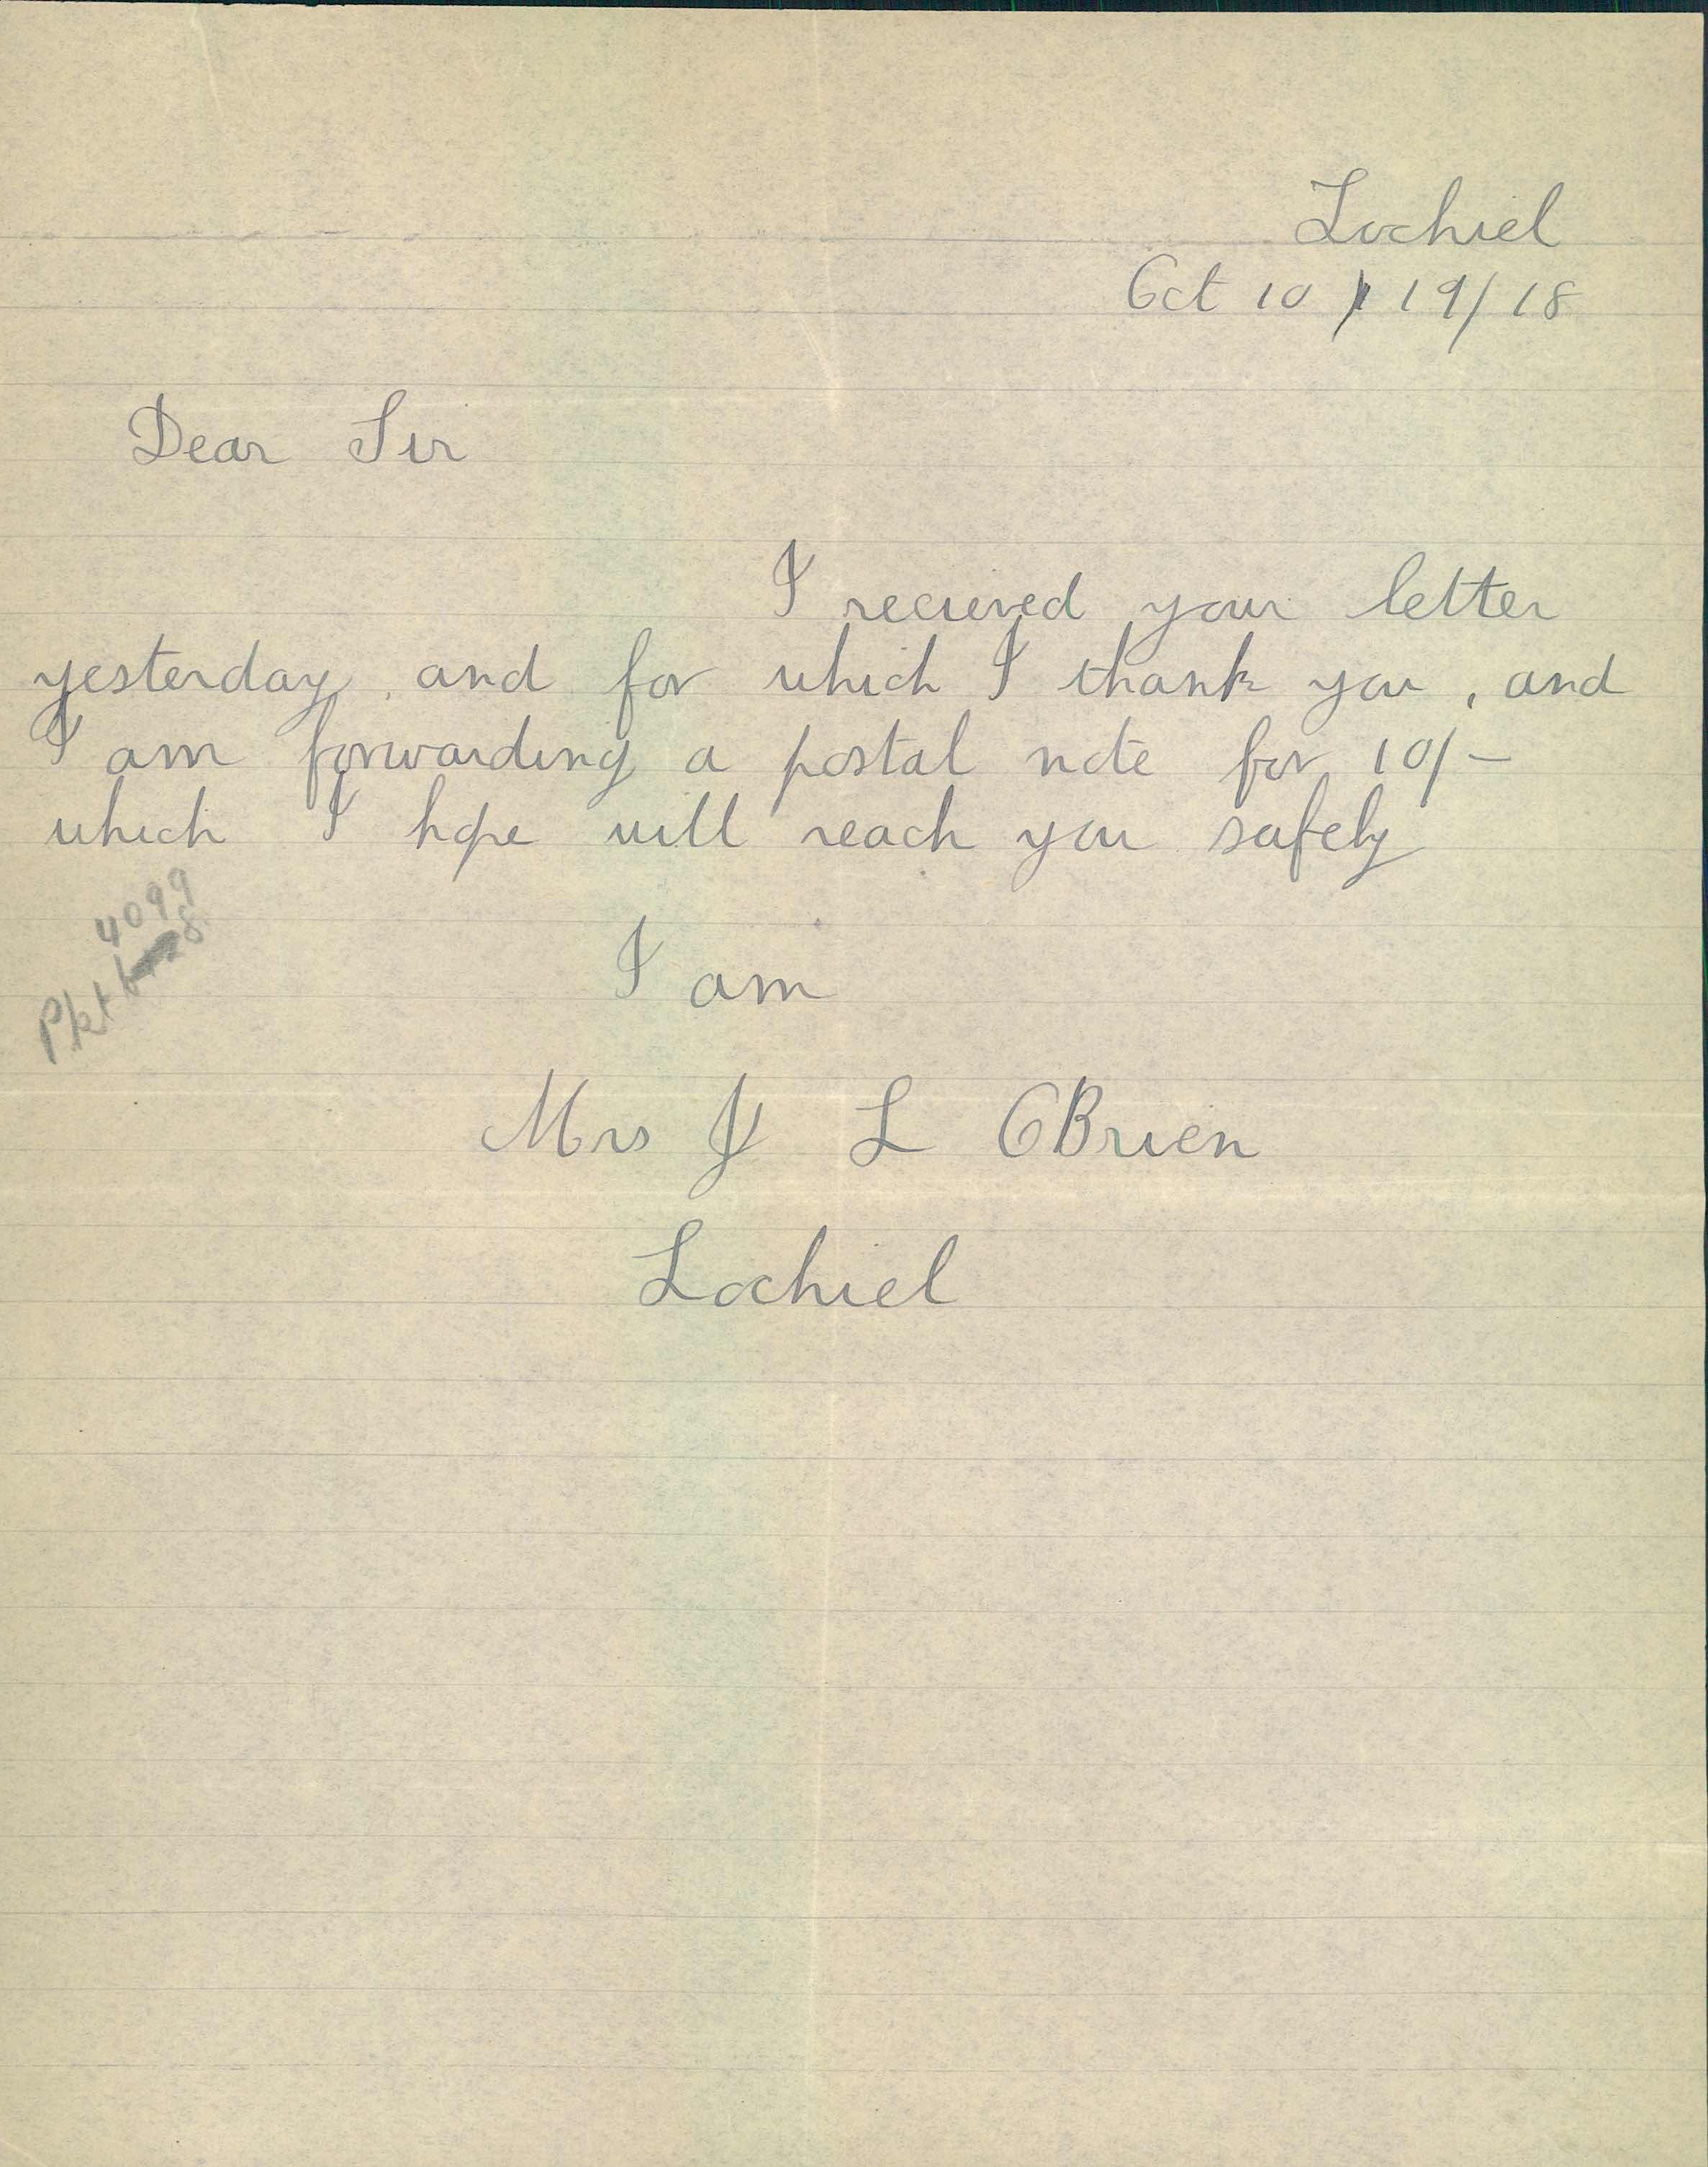 Lochiel
Oct 10 19/18
Dear Sir
I recieved your letter
yesterday and for which I thank you, and
I am forwarding a postal note for 10/-
which I hope will reach you safely
4099
Pkt
I am
Mrs J L OBrien
Lochiel